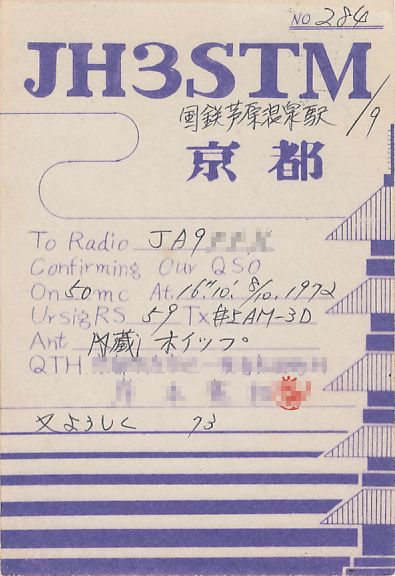 NO 284
JH3STM/9
国鉄芦原温泉駅
京都
To Radio JA9
Confirming Our QSO
On 50 mc At. 16" 10' 8/10. 1972
Ursig RS 59 Tx #5AM-3D
Ant 内蔵ホイップ
QTH
又よろしく 73